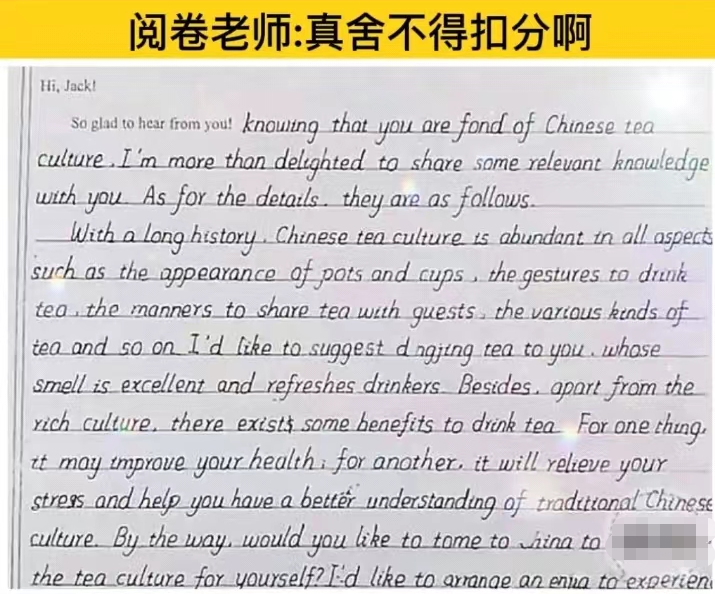 阅卷老师:真舍不得扣分啊
Hi, Jack!
So glad to hear from you! knowing that you are fond of Chinese tea
culture, I'm more than delighted to share some relevant knowledge
with you. As for the details, they are as follows.
With a long history, Chinese tea culture is abundant in all aspects
such as the appearance of pots and cups, the gestures to drink
tea, the manners to share tea with guests, the various kinds of
tea and so on I'd like to suggest tea to you, whose
smell is excellent and refreshes drinkers. Besides, apart from the
rich culture, there exists some benefits to drink tea For one thing,
it may improve your health; for another, it will relieve your
stress and help you have a better understanding of traditional Chinese
culture. By the way, would you like to to to
the tea culture for yourself? I'd like to arrange an to